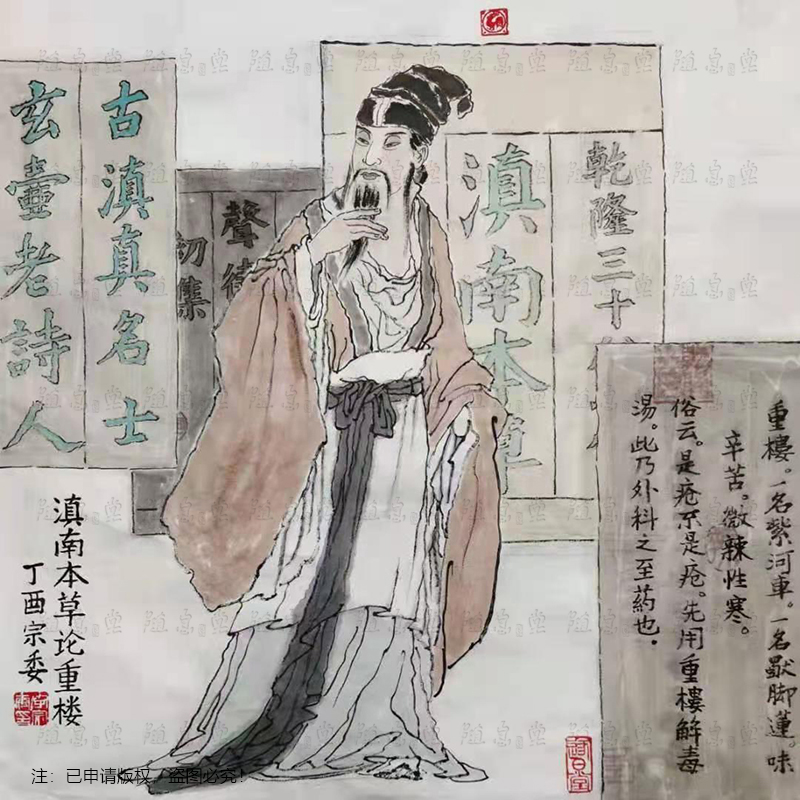 重樓。一名紫河車。一名脚蓮。味
辛苦。微辣性寒。
俗云。是疮不是疮。先用重樓解毒
湯。此乃外科之至藥也.
乾隆三十
滇南本草
聲
集
古滇真名士
玄壺老詩人
滇南本草论重楼
丁酉宗委
注：已申请版权，盗图必究！